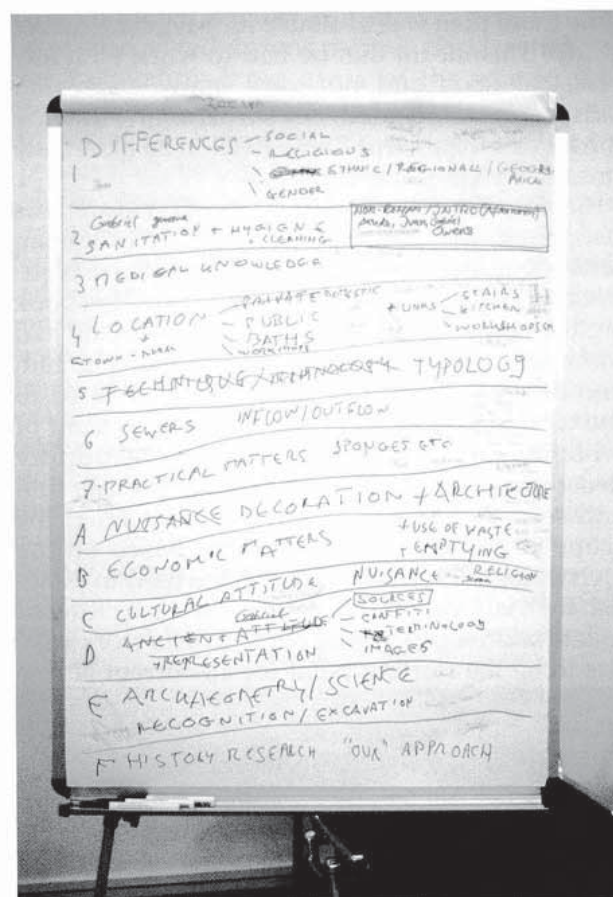 DIFFERENCES - SOCIAL
1 - RELIGIOUS
- ETHNIC / REGIONALL / GEOGR
APHICAL
- GENDER
Gabriel
2 SANITATION + HYGIENE
+ CLEANING
NON-ROMAN / INTRO (AFTERWARDS)
Juan, Gabriel
Owens
3 MEDICAL KNOWLEDGE
4 LOCATION - PRIVATE DOMESTIC
- PUBLIC
- BATHS
- WORKSHOPS
+
+ LINKS - STAIRS
- KITCHEN
- WORKSHOPS
5 TECHNIQUE / TYPOLOGY
6 SEWERS INFLOW/OUTFLOW
7 PRACTICAL MATTERS SPONGES ETC
A NUISANCE DECORATION + ARCHITECTURE
B ECONOMIC MATTERS + USE OF WASTE
+ EMPTYING
C CULTURAL ATTITUDE NUISANCE RELIGION
Gabriel
D ANCIENT ATTITUDE - SOURCES
- GRAFFITI
- TERMINOLOGY
- IMAGES
+ REPRESENTATION
E ARCHAEOMETRY / SCIENCE
RECOGNITION / EXCAVATION
F HISTORY RESEARCH "OUR" APPROACH